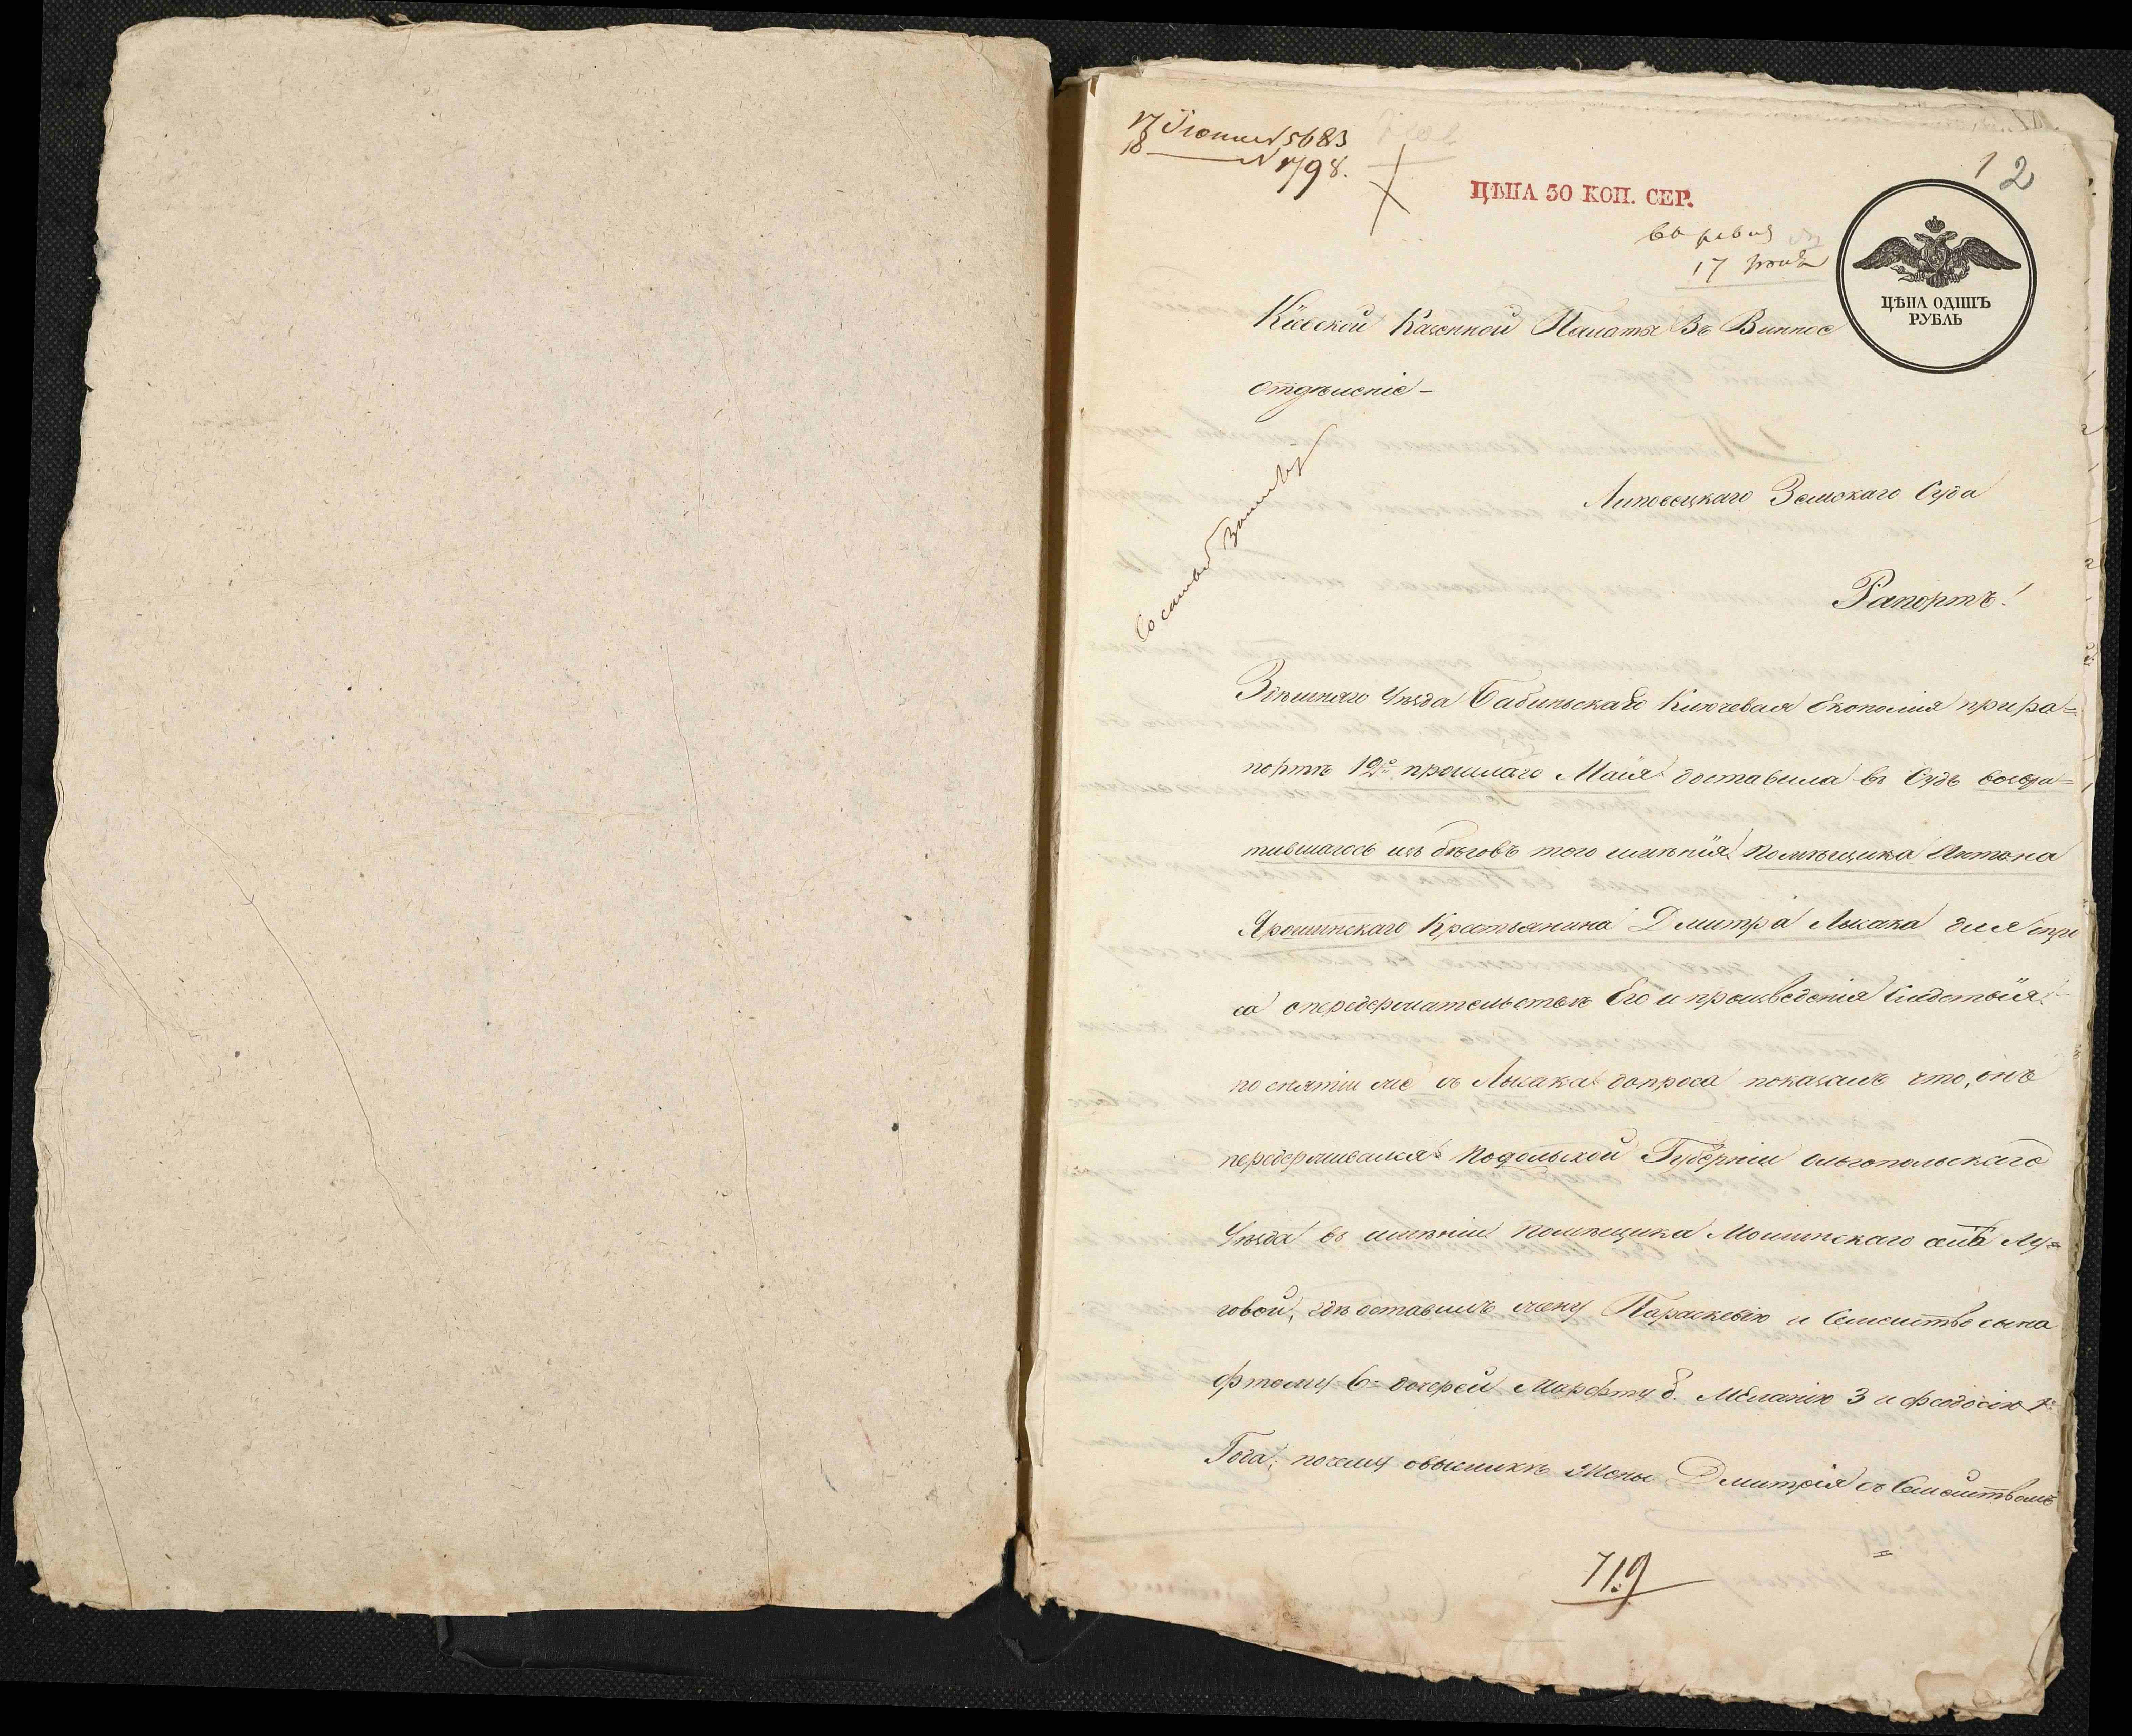 17 Іюня N 5683
18 N 1798.
1 2
ЦѢНА 50 КОП. СЕР.
въ ревиз
17 Іюня
ЦѢНА ОДИНЪ
РУБЛЬ
Кіевской Казенной Палаты Въ Винное
отдѣленіе -
Липовецкаго Земскаго Суда
Рапортъ!
Здѣшняго Уѣзда Бабиньскаго Ключевая Економія при ра=
портѣ 12го прошлаго Маія доставила въ Судъ возвра=
тившагось изъ бѣговъ того имѣнія помѣщика Антона
Ярошинскаго Крестьянина Дмитра Лысака для спро
са о передержательствѣ Его и произведенія Слѣдствія
по снятіи же съ Лысака допроса показалъ что, онъ
передерживался Подольской Губерніи Ольгопольскаго
Уѣзда въ имѣніи Помѣщика Мошинскаго селѣ Лу=
говой, гдѣ оставилъ жену Параскевію и Семейство сына
Фтому 6. дочерей Марфту 8. Меланію 3 и Феодосію 1.
Года; почему о высылкѣ Жены Дмитрія съ Семействомъ
719